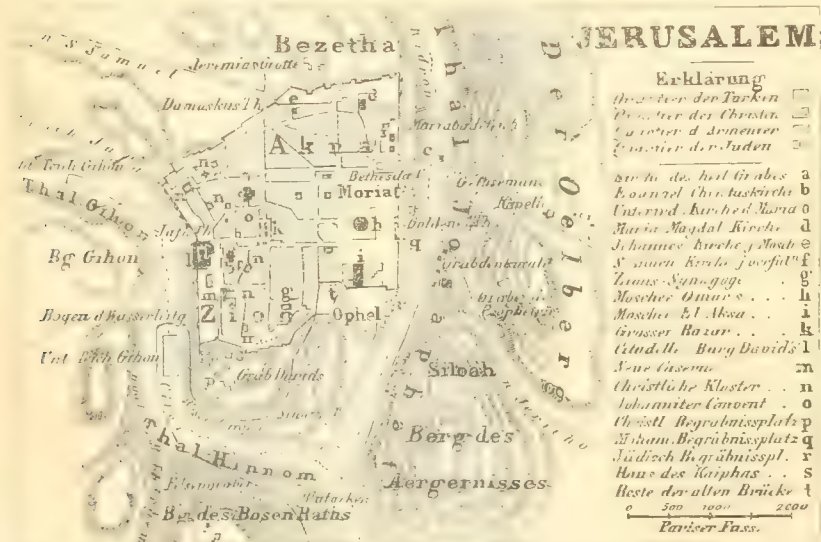 JERUSALEM
Erklärung
Quartier der Türken
Quartier der Christen
Quartier d Armenier
Quartier der Juden
Kirche des heil Grabes a
Evangel Christuskirche b
Unterird. Kirche d. Maria c
Maria Magdal Kirche d
Johannes Kirche j Mosch e
S Kirche f
Zions-Synagoge g
Moschee Omars h
Moschee El Aksa i
Grosser Bazar k
Citadelle Burg Davids l
Neue Caserne m
Christliche Kloster n
Johanniter Convent o
Christl Begräbnissplatz p
Moham. Begräbnissplatz q
Jüdisch Begräbnisspl. r
Haus des Kaiphas s
Reste der alten Brücke t
0 500 1000 2000
Pariser Fuss.
Bezetha
Jeremiasgrotte
Damaskus Th.
Akra
Bethesda T
Moria
Gethsemane
Kapelle
Golden Th.
Thal Josaphat
Der Oelberg
Ob Teich Gihon
Thal Gihon
Jafa Th.
Bg Gihon
Zion
Ophel
Bogen d Wasserleitg
Unt Teich Gihon
Grab Davids
Siloah
n Jericho
Thal Hinnom
Berg des
Aergernisses
Bg. des Bosen Raths